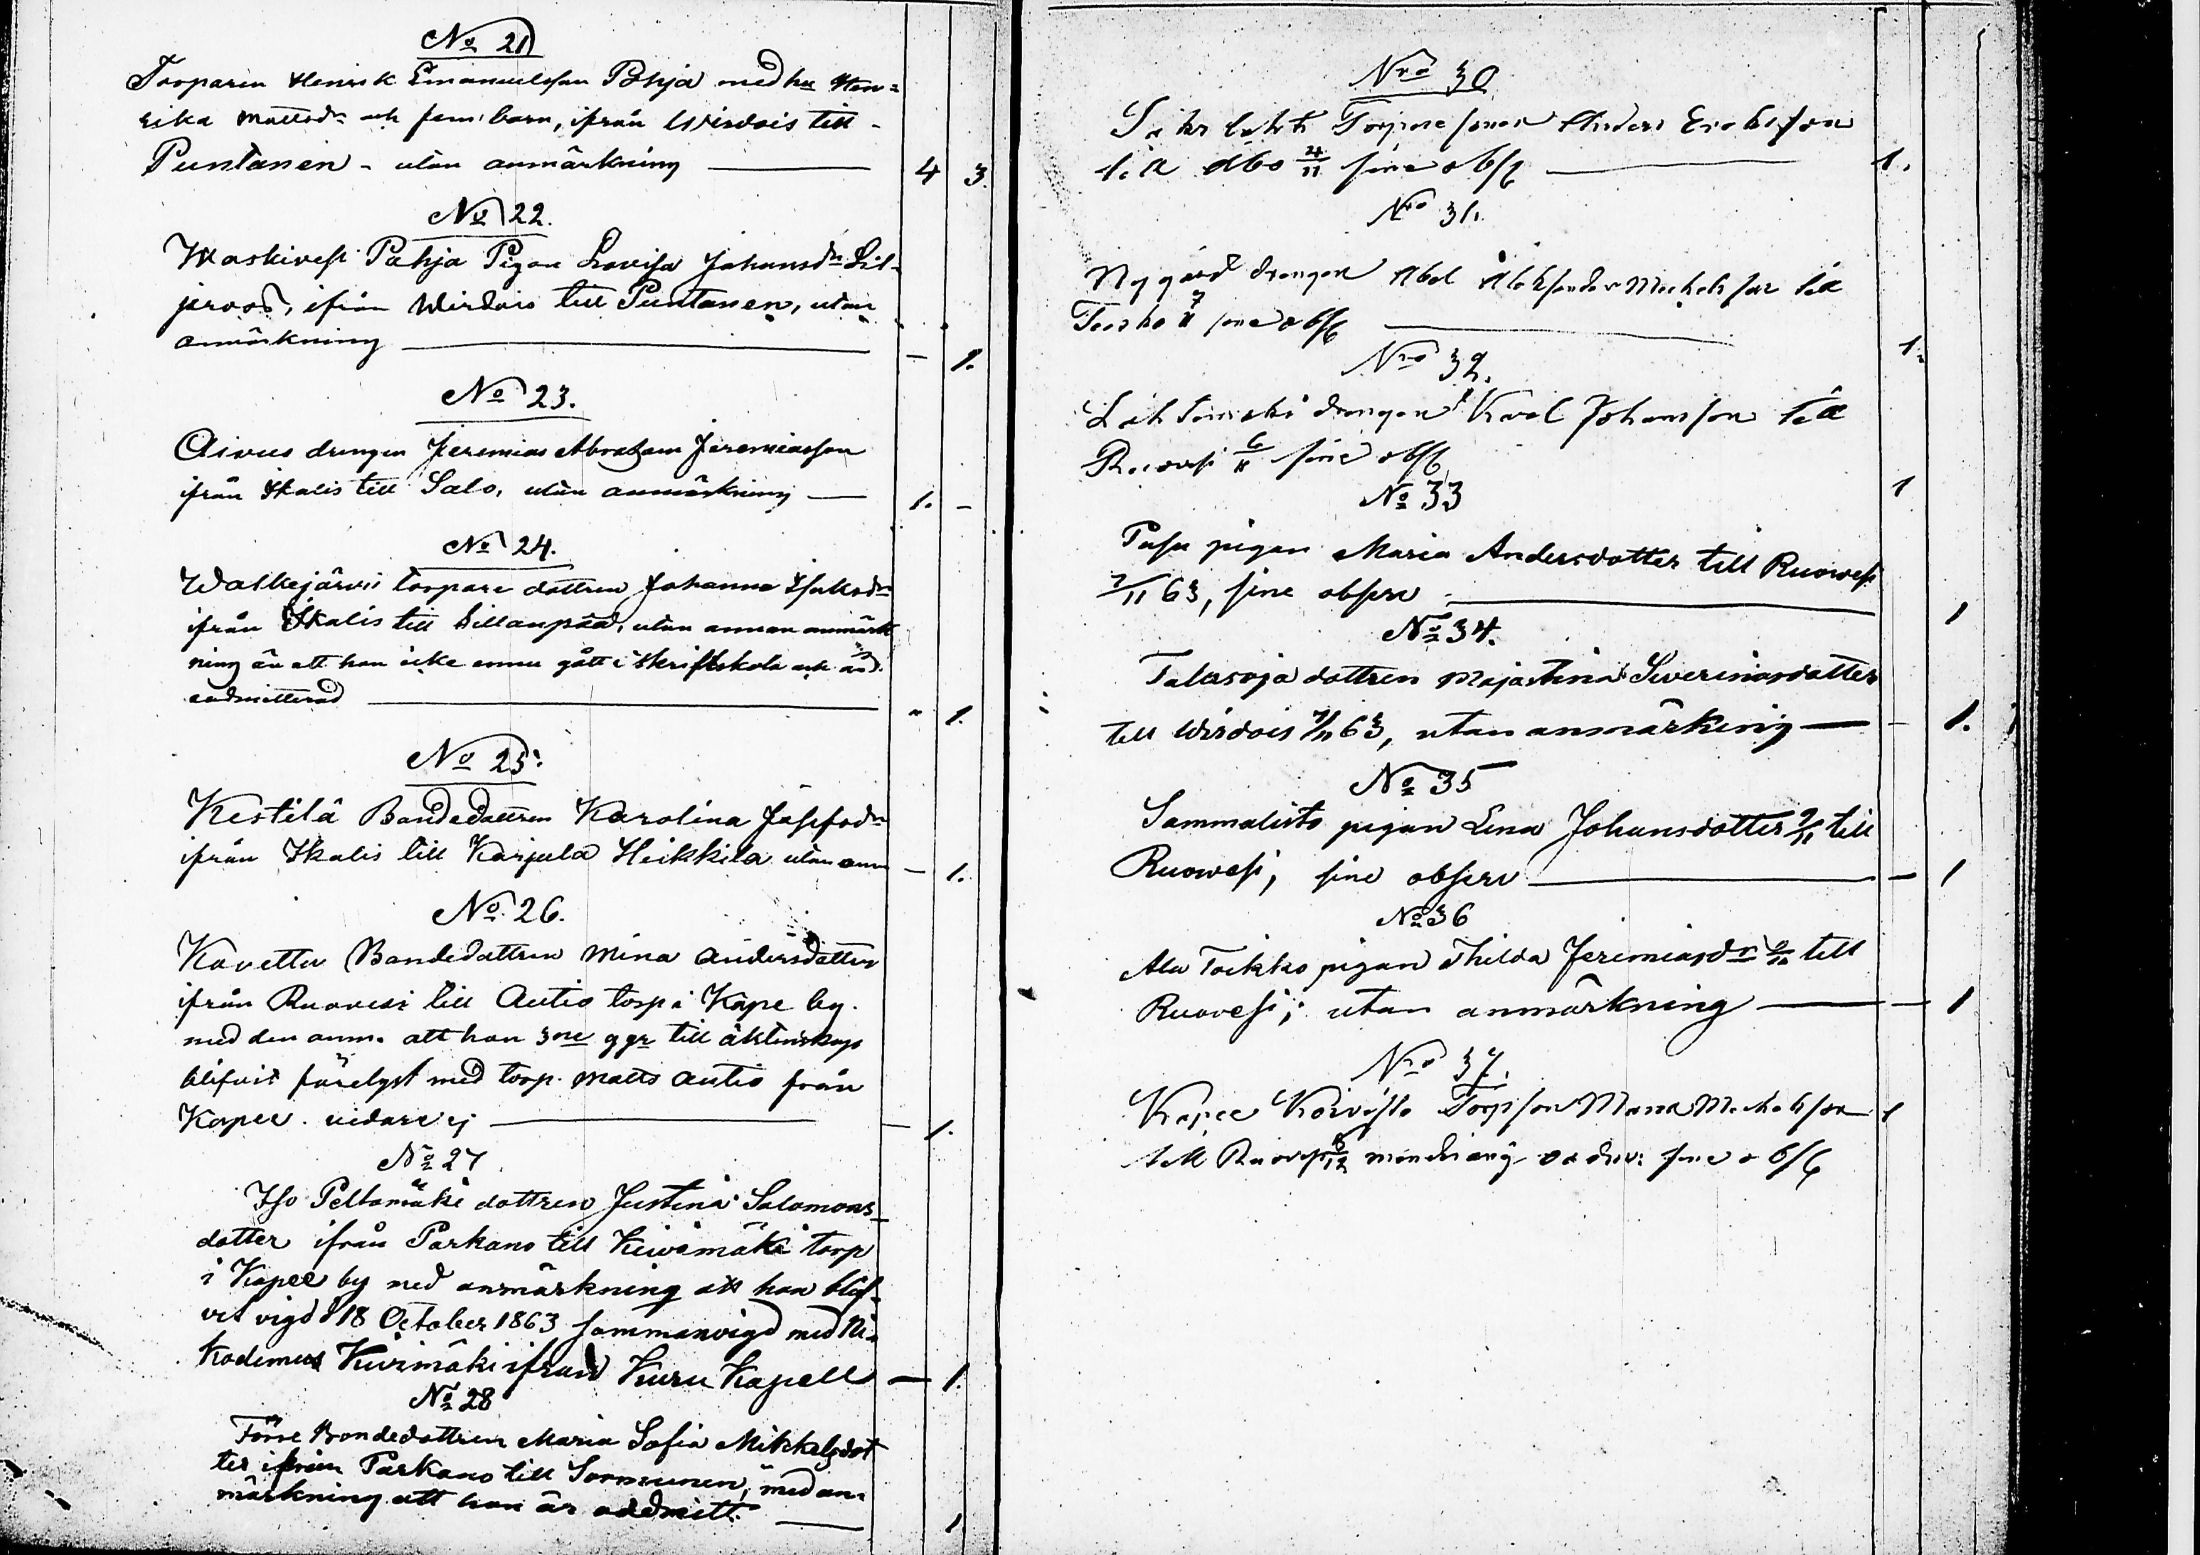 No 21
Torparen Henrik Emanuelsson Pohja med hu Hen=
rika Mattsdr och fem barn, ifrån Wirdois till
Puntanen - utan anmärkning 4 3.
No 22.
Waskivesi Pahja Pigan Lovisa Johansdr Lil-
jeroos, ifrån Wirdois till Puntanen, utan
anmärkning - 1.
No 23.
Aivus drengen Jeremias Abraham Jeremiasson
ifrån Ikalis till Salo, utan anmärkning 1. -
No 24.
Walkejärvi torpare dottren Johanna Isaksdr
ifrån Ikalis till Sillanpää, utan annan anmärk
ning än att hon icke ännu gått i skriftskola och
admitterad " 1.
No 25.
Kestilä Bondedottren Karolina Josefsdr
ifrån Ikalis till Karjula Heikkila utan anm - 1.
No 26.
Kovettu Bondedottren Mina Andersdotter
ifrån Ruovesi till Autio torp i Kape by.
med den anm. att hon 3ne ggr till äktenskap
blifvit förelyst med torp. Matts Autio från
Kapee. vidare ej - 1.
No 27
Iso Peltomäki dottren Justina Salomons-
dotter ifrån Parkano till Kiwimäki torp
i Kapee by med anmärkning att hon blif-
vit vigd 18 October 1863 sammanvigd med Ni-
kodemus Kivimäki ifrån Kuru Kapell - 1.
No 28
Förre Bondedottren Maria Sofia Mikkelsdot
ter ifrån Parkano till Sormunen, med an-
märkning att hon är addmitt. 1
Nro 30
Torpare sonen Anders Eriksson
till Åbo 4/11 sine obs 1.
Nro 31.
Nygård drengen Abel Aleksander Michelsson till
Teisko 7/11 sine obs 1.
Nro 32.
drengen Karl Johansson till
Ruovesi 6/11 sine obs 1
No 33
pigan Maria Andersdotter till Ruowesi
7/11 63, sine observ 1
No 34.
Talasoja dottren Majastina Severinasdotter
till Wirdois 7/11 63, utan anmärkning - 1.
No 35
Sammalisto pigan Lena Johansdotter 9/11 till
Ruowesi, sine observ - 1
No 36
Ala Toikko pigan Thilda Jeremiasdr till
Ruovesi; utan anmärkning - 1
Nro 37.
Kapee Koivisto Torpson Michelsson 1
till Ruovesi sine obs